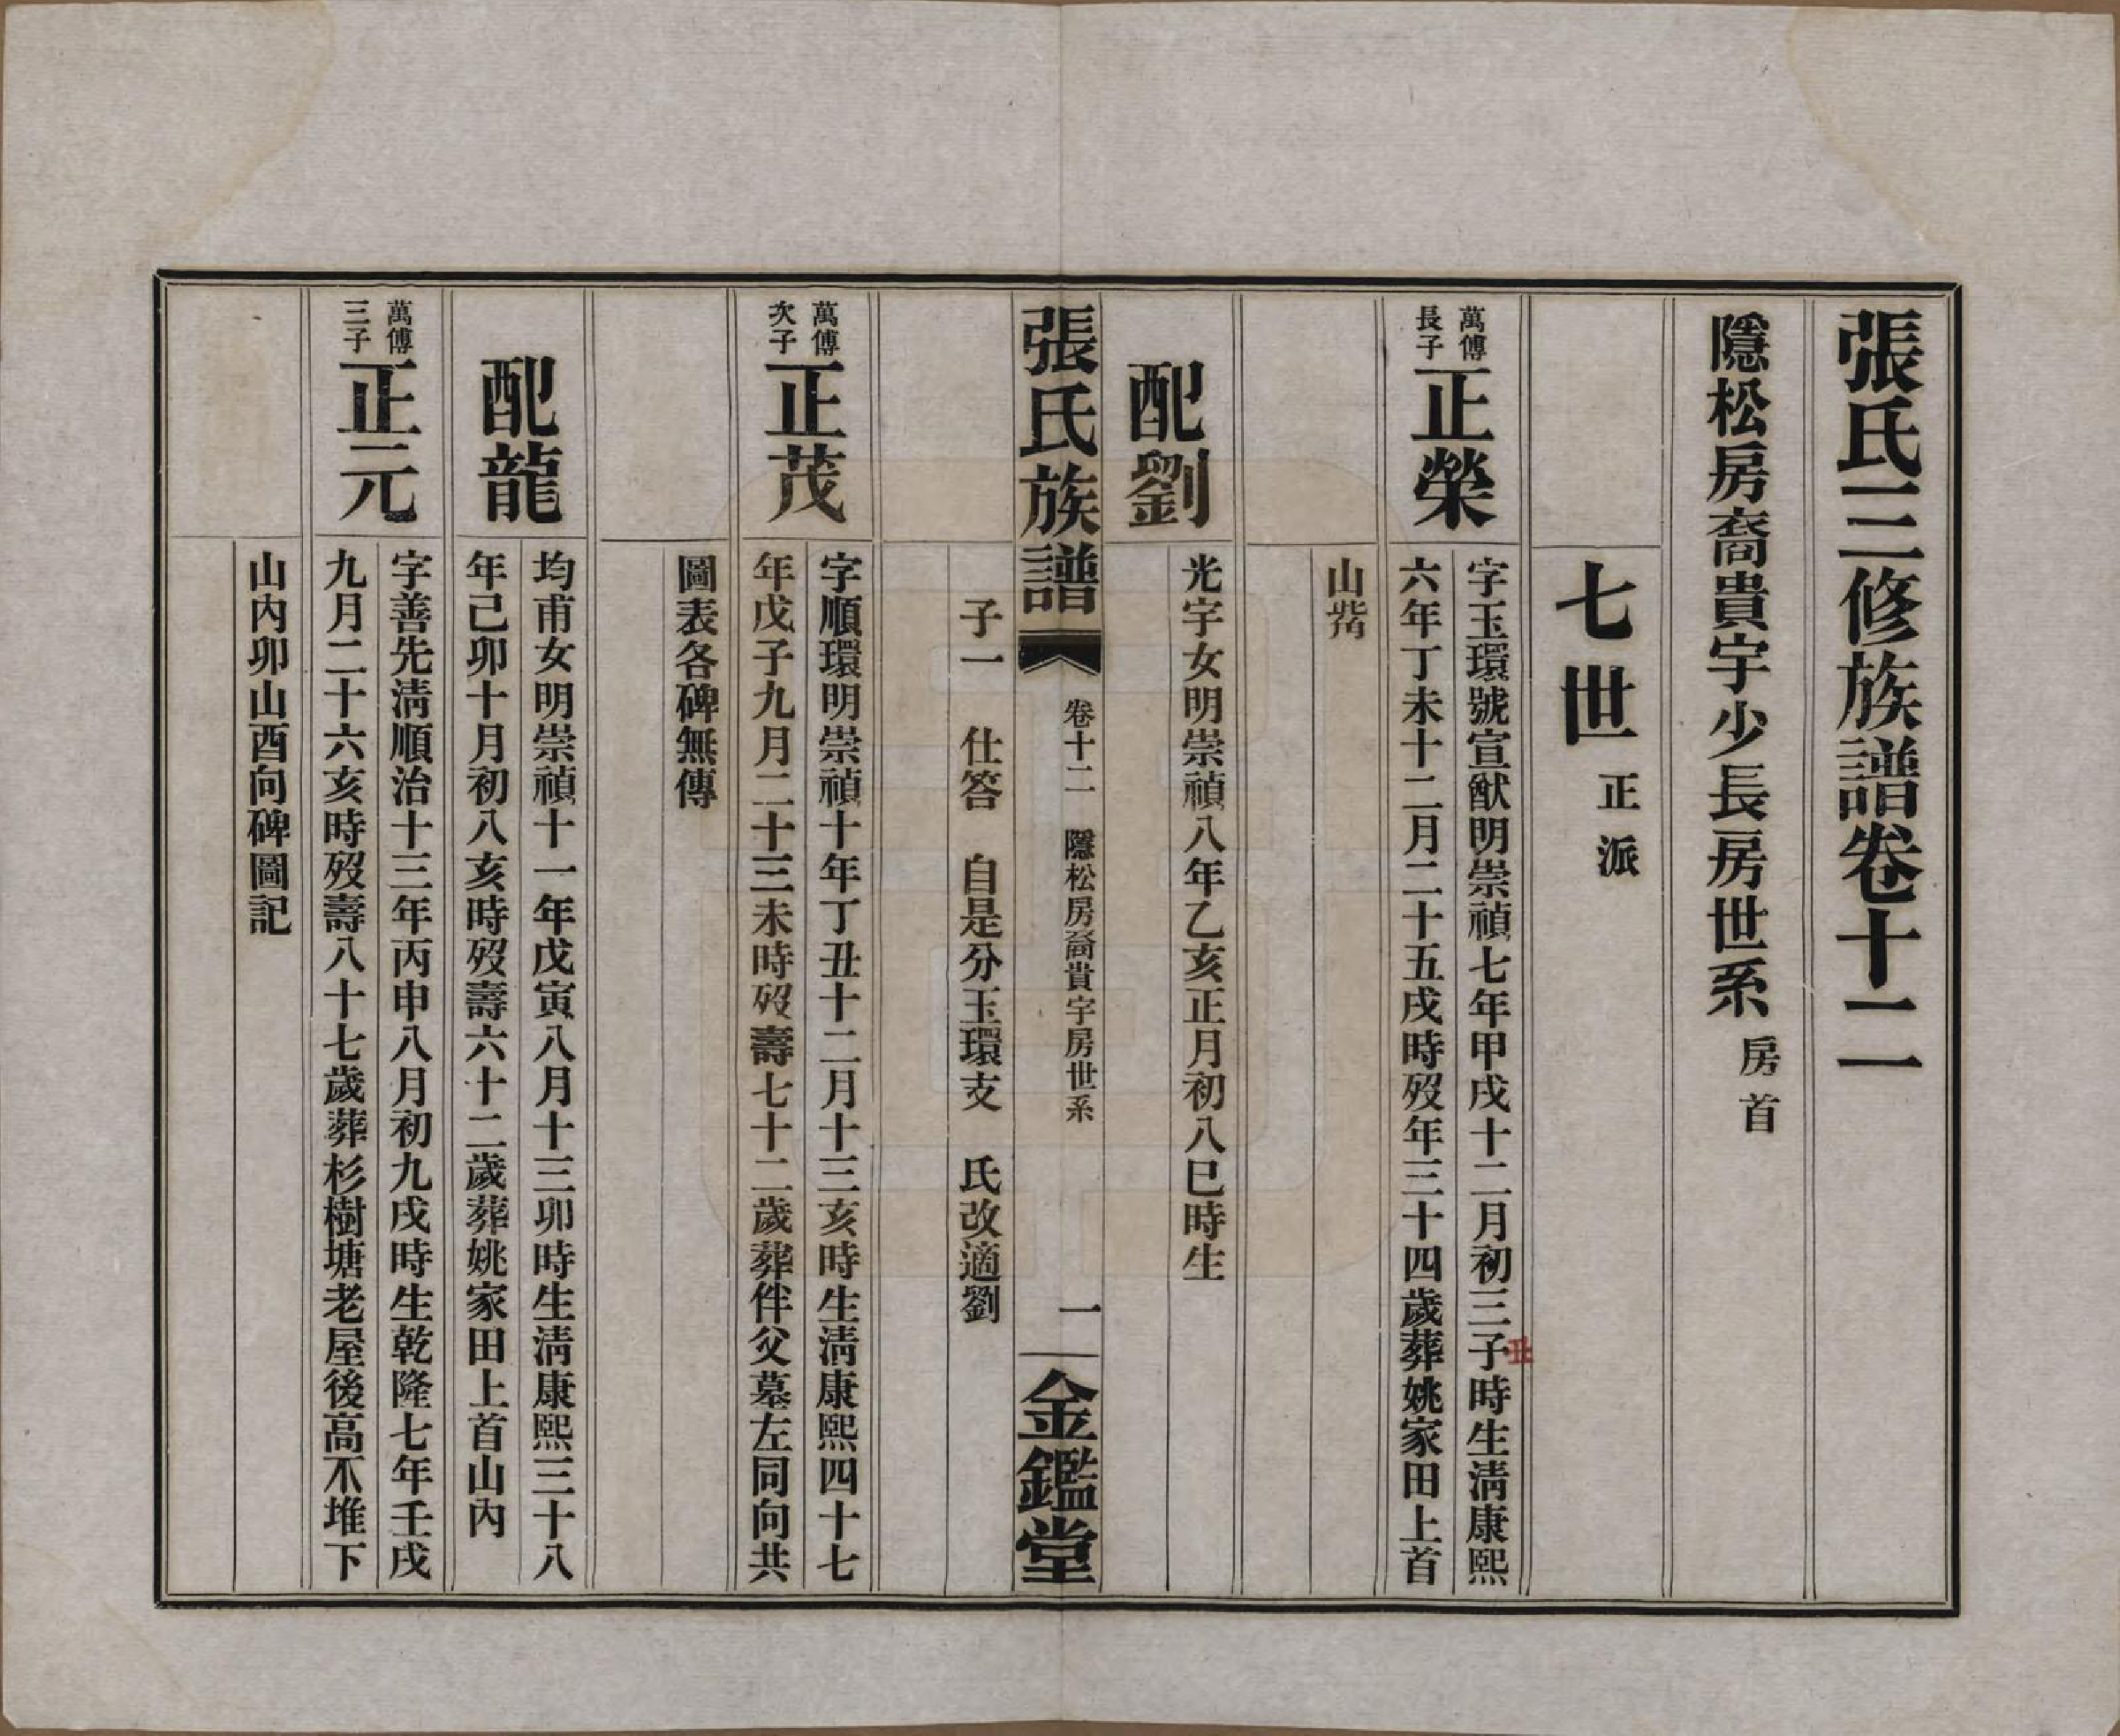 張氏三修族譜卷十二
隱松房裔貴宇少長房世系 房首
七世 正派
萬傅長子 正榮
字玉環號宣猷明崇禎七年甲戌十二月初三子時生淸康熙
丑
六年丁未十二月二十五戌時歿年三十四歲葬姚家田上首
山嘴
配劉
光宇女明崇禎八年乙亥正月初八巳時生
張氏族譜 卷十二 隱松房裔貴宇房世系 一 金鑑堂
子一 仕答 自是分玉環支 氏改適劉
萬傅次子 正茂
字順環明崇禎十年丁丑十二月十三亥時生淸康熙四十七
年戊子九月二十三未時歿壽七十二歲葬伴父墓左同向共
圖表各碑無傳
配龍
均甫女明崇禎十一年戊寅八月十三卯時生淸康熙三十八
年己卯十月初八亥時歿壽六十二歲葬姚家田上首山內
萬傅三子 正元
字善先淸順治十三年丙申八月初九戌時生乾隆七年壬戌
九月二十六亥時歿壽八十七歲葬杉樹塘老屋後高不堆下
山內卯山酉向碑圖記